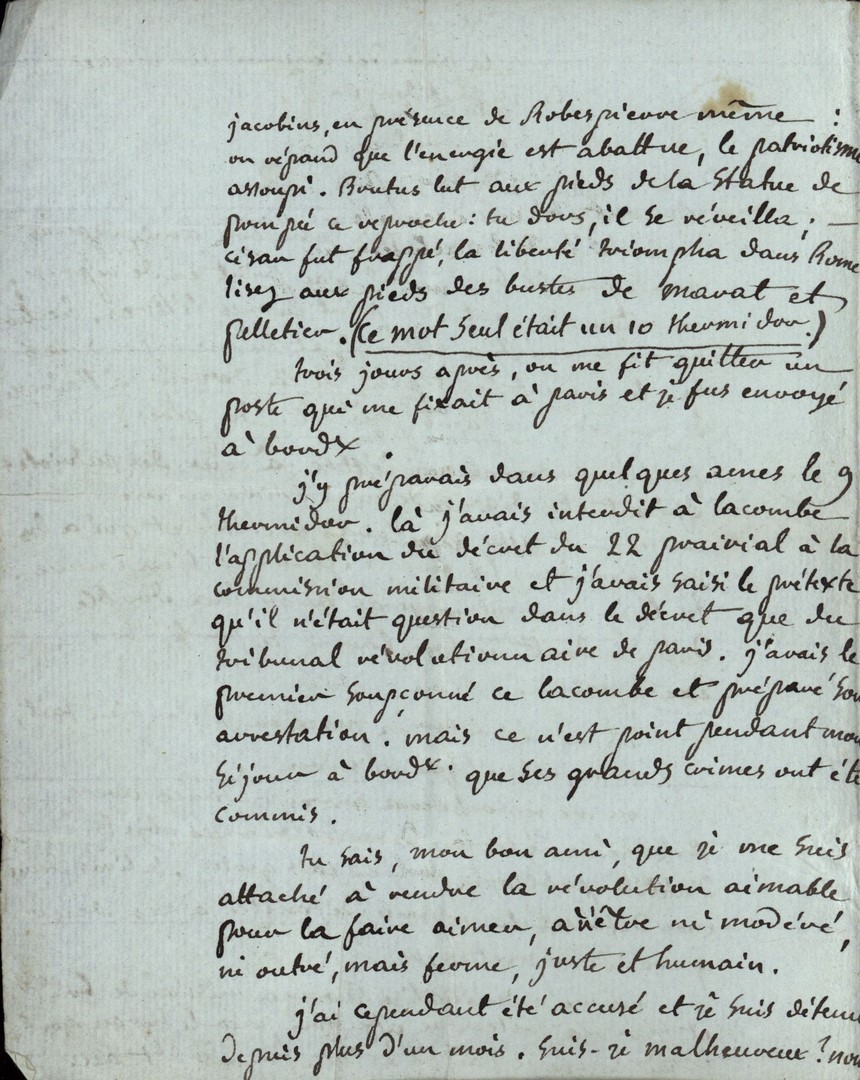 jacobins, en présence de Robespierre même :
on répand que l'énergie est abattue, le patriotisme
assoupi. Brutus lut aux pieds de la statue de
pompée ce reproche : tu dors, il se réveilla ; —
césar fut frappé, la liberté triompha dans Rome
lisez aux pieds des bustes de marat et
pelletier. (Ce mot seul était un 10 thermidor.)
trois jours après, on me fit quitter un
poste qui me fixait à paris et je fus envoyé
à bordx.
j'y préparais dans quelques ames le 9
thermidor. là j'avais interdit à lacombe
l'application du décret du 22 prairial à la
commission militaire et j'avais saisi le prétexte
qu'il n'était question dans le décret que du
tribunal révolutionnaire de paris. j'avais le
premier soupçonné ce lacombe et préparé son
arrestation. mais ce n'est point pendant mon
séjour à bordx. que ses grands crimes ont été
commis.
tu sais, mon bon ami, que je me suis
attaché à rendre la révolution aimable
pour la faire aimer, à n'être ni modéré,
ni outré, mais ferme, juste et humain.
j'ai cependant été accusé et je suis détenu
depuis plus d'un mois. suis-je malheureux ? non